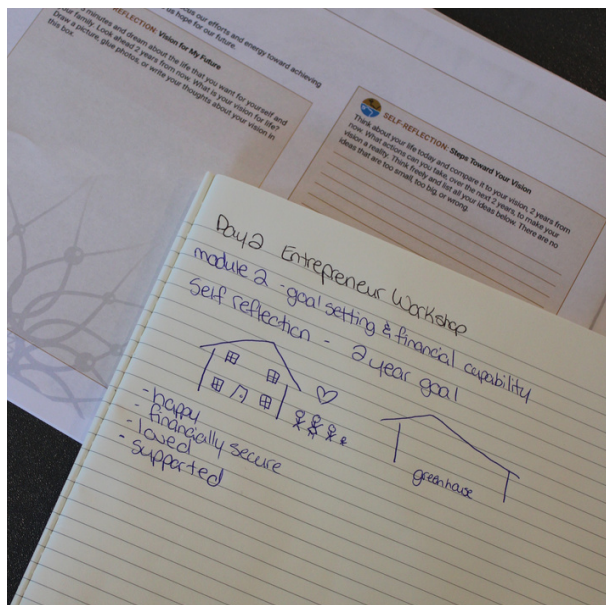 us our efforts and energy toward achieving
us hope for our future.
REFLECTION: Vision for My Future
minutes and dream about the life that you want for yourself and
our family. Look ahead 2 years from now. What is your vision for life?
Draw a picture, glue photos, or write your thoughts about your vision in
this box.
SELF-REFLECTION: Steps Toward Your Vision
Think about your life today and compare it to your vision, 2 years from
now. What actions can you take, over the next 2 years, to make your
vision a reality. Think freely and list all your ideas below. There are no
ideas that are too small, too big, or wrong.
Day 2 Entrepreneur Workshop
module 2 - goal setting & financial capability
Self reflection - 2 year goal
- happy
- financially secure
- loved
- supported
greenhouse